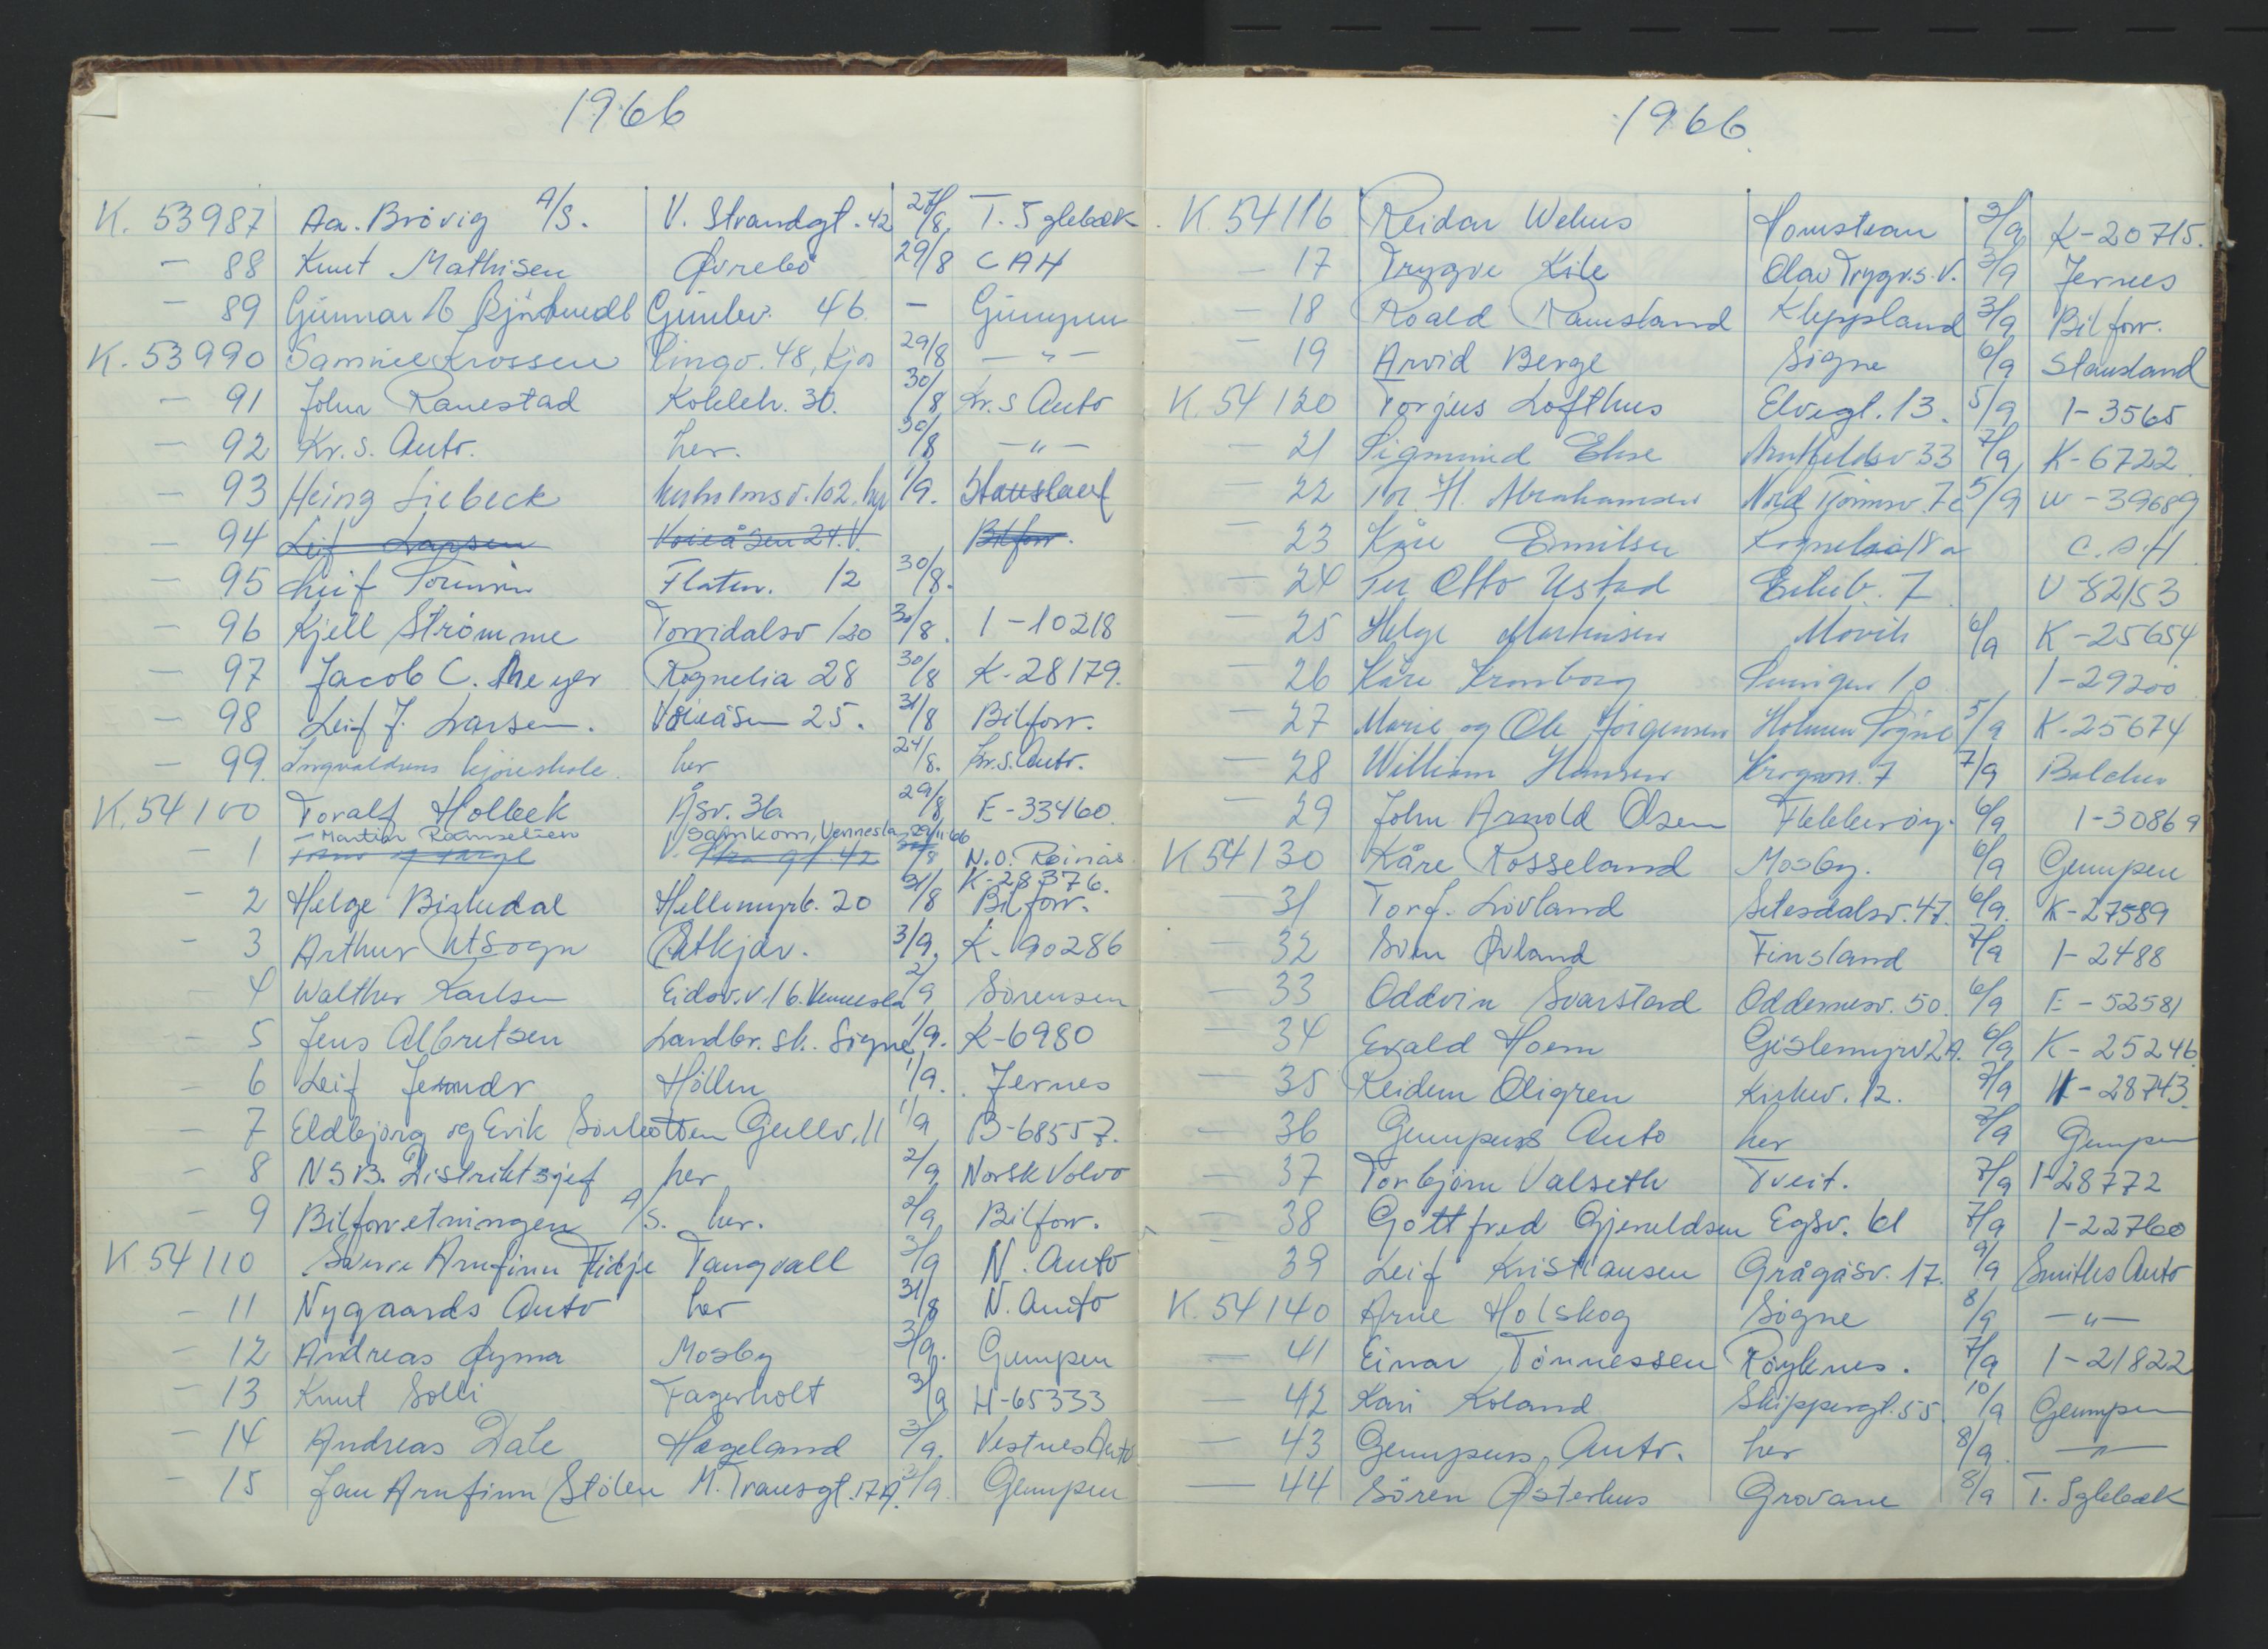 1966
K. 53987 Aa. Brövig A/S. V. Strandgt. 42 27/8 T. Sglebæk
— 88 Knut Mathisen Øvrebö 29/8 CAH
— 89 Gunnar Gimlev. 46 — Gumpen
K. 53990 Samuel Krossen Lingv. 48, Kjos 29/8 — " —
— 91 John Ranestad Kolleh. 30. 30/8 Kr. S Auto
— 92 Kr. S. Auto. her. 30/8 — " —
— 93 Heinz Liebeck 102, her 1/9.
— 94 Leif Larsen Voieåsen 24. V. Bilforr.
— 95 Leif Flatev. 12 30/8.
— 96 Kjell Strømme Torridalsv 120 30/8. I-10218
— 97 Jacob C. Meyer Rognelia 28 30/8 K-28179.
— 98 Leif J. Larsen. Voieåsen 25. 31/8 Bilforr.
— 99. Ingvaldsens kjøreskole. her 24/8. Kr.S. Auto.
K. 54100 Toralf Holbek Åsv. 36 29/8 E-33460
— Martin Samkom, Vennesla 29/11 66
— 1 V. Str. gt. 42 N.O. Reinås
K-28376.
— 2 Helge Birkedal Hellemyrb. 20 31/8 Bilforr.
— 3 Arthur Utsogn Østkjær. 3/9. K-90286
— 4 Walther Karlsen Eidsv.v. 16. Vennesla 2/9 Sörensen
— 5 Jens Albretsen Landbr. sk. Sögne 1/9. K-6980
— 6 Leif Höllen 1/9. Jernes
— 7 Eldbjørg og Erik Gullv. 11 1/9 B-68557.
— 8 NSB. Distriktsjef her 2/9 Norsk Volvo
— 9 Bilforretningen A/S. her. 2/9 Bilforr.
K 54110 Sverre Arnfinn Fidje Tangvall 3/9 N. Auto
— 11 Nygaards Auto her 31/8 N. Auto
— 12 Andreas Øyna Mosby 3/9. Gumpen
— 13 Knut Solli Fagerholt 3/9 H-65333
— 14 Andreas Dale Hægeland 3/9. Vestnes Auto
— 15 Jan Arnfinn Stölen M. Transgt. 17A. 2/9. Gumpen
1966.
K. 54116 Reidar Wehus Homstean 3/9 K-20715.
— 17 Trygve Kile Olav Trygv.s. V. 3/9 Jernes
— 18 Roald Ramsland Kleppland 3/9 Bilforr.
— 19 Arvid Berge Sögne 6/9 Stausland
K. 54120 Torjus Lofthus Elvegt. 13. 5/9 I-3565
— 21 Sigmund Arnfeldsv 33 7/9 K-6722
— 22 Tor H. Abrahamsen Nord Tjömsv. 7c 5/9 W-39689
— 23 Kåre Emilsen Rognelia 18a C.A.H
— 24 Per Otto Ustad 7 V-82153
— 25 Helge Martinsen Movik 6/9 K-25654
— 26 Kåre Kronborg Svingen 10 I-29200
— 27 Marie og Ole Jörgensen Holmen Sögne 5/9 K-25674
— 28 William Hansen Krogen. 7 7/9 Balchen
— 29 John Arnold Olsen Flekkeröy. 6/9 I-30869
K 54130 Kåre Rosseland Mosby. 6/9 Gumpen
— 31 Torf. Lövland Setesdalsv. 47. 6/9. K-27589
— 32 Sven Øvland Finsland 7/9 I-2488
— 33 Oddvin Svarstad Oddernesv. 50. 6/9 E-52581
— 34 Evald Hoem Gislemyrv 2A. 6/9 K-25246
— 35 Reidun Oligren Kirkev. 12. 7/9 K-28743
— 36 Gumpens Auto her 7/9 Gumpen
— 37 Torbjörn Valseth Tveit. 7/9 I-28772
— 38 Gottfred Gjeruldsen Egsv. 61 7/9 I-22760
— 39 Leif Kristiansen Grågåsv. 17. 9/9 Smiths Auto
K. 54140 Arne Holskog Sögne 8/9 — " —
— 41 Einar Tönnessen Röyknes. 7/9 I-21822
— 42 Kari Koland Skippergt. 55 10/9 Gumpen
— 43 Gumpens Auto. her 8/9 — " —
— 44 Sören Østerhus Grovane 8/9 T. Sglebæk